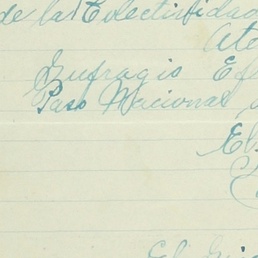 de la Colectividad
Ate
Sufragio Ef
Paso Nacional
El